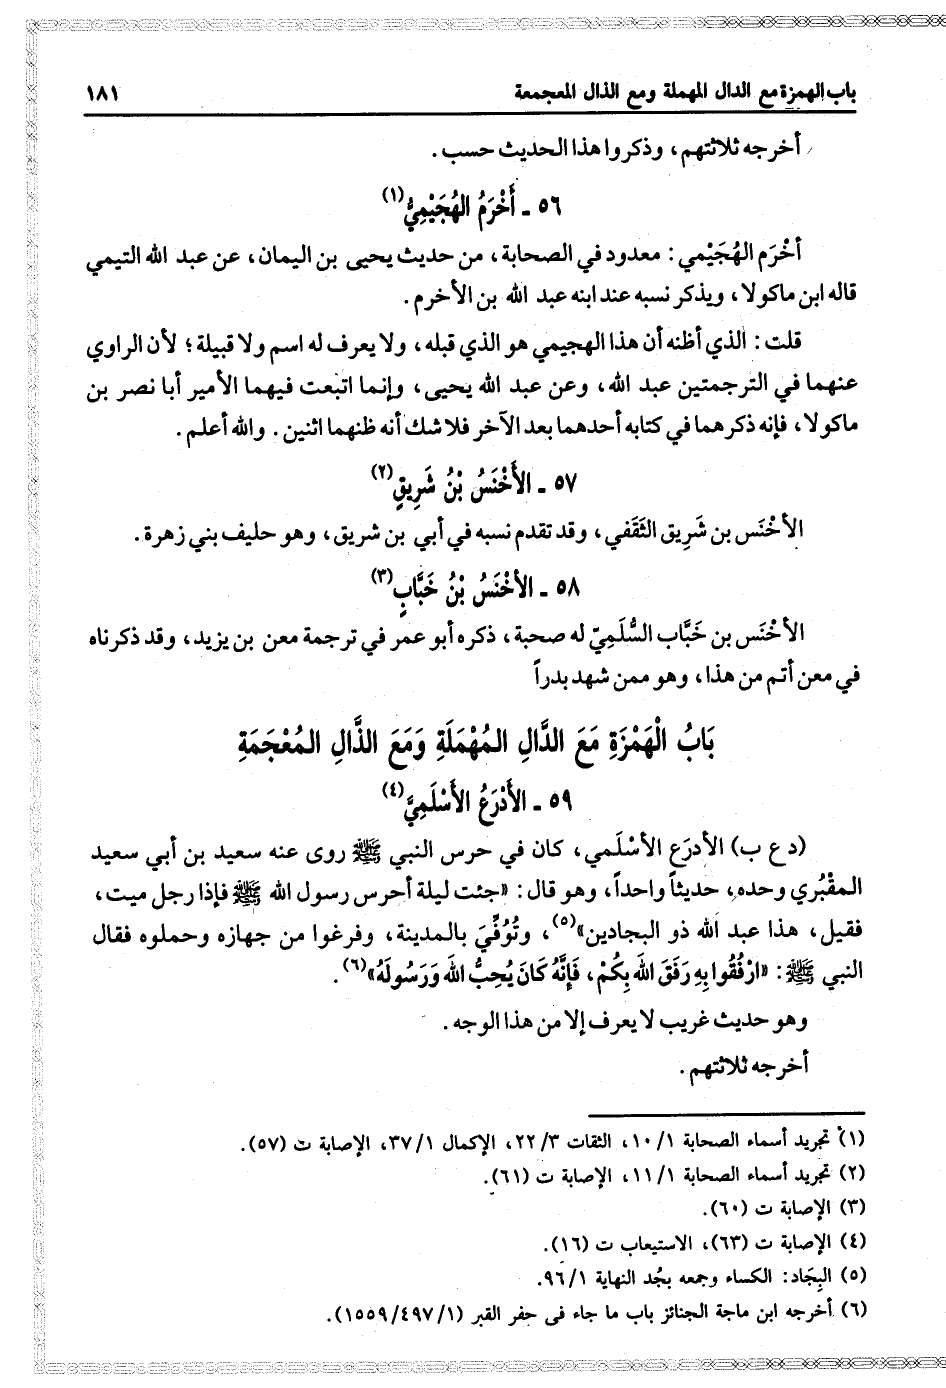 باب الهمزة مع الدال المهملة ومع الذال المعجمعة ١٨١
أخرجه ثلاثتهم، وذكروا هذا الحديث حسب.
٥٦ ـ أَخْرَمُ الهُجَيْمِيُّ(١)
أخْرَم الهُجَيْمي: معدود في الصحابة، من حديث يحيى بن اليمان، عن عبد الله التيمي
قاله ابن ماكولا، ويذكر نسبه عند ابنه عبد الله بن الأخرم.
قلت: الذي أظنه أن هذا الهجيمي هو الذي قبله، ولا يعرف له اسم ولا قبيلة؛ لأن الراوي
عنهما في الترجمتين عبد الله، وعن عبد الله يحيى، وإنما اتبعت فيهما الأمير أبا نصر بن
ماكولا، فإنه ذكرهما في كتابه أحدهما بعد الآخر فلا شك أنه ظنهما اثنين. والله أعلم.
٥٧ ـ الأَخْنَسُ بْنُ شَرِيقٍ(٢)
الأخْنَس بن شَرِيق الثَقَفي، وقد تقدم نسبه في أبي بن شريق، وهو حليف بني زهرة.
٥٨ ـ الأخْنَسُ بْنُ خَبَّابٍ(٣)
الأخْنَس بن خَبَّاب السُّلَمِيّ له صحبة، ذكره أبو عمر في ترجمة معن بن يزيد، وقد ذكرناه
في معن أتم من هذا، وهو ممن شهد بدراً
بَابُ الْهَمْزَةِ مَعَ الدَّالِ المُهْمَلَةِ وَمَعَ الذَّالِ المُعْجَمَةِ
٥٩ ـ الأَدْرَعُ الأَسْلَمِيَّ(٤)
(د ع ب) الأدرَع الأسْلَمي، كان في حرس النبي ﷺ روى عنه سعيد بن أبي سعيد
المقْبُري وحده، حديثاً واحداً، وهو قال: «جئت ليلة أحرس رسول الله ﷺ فإذا رجل ميت،
فقيل، هذا عبد الله ذو البجادين»(٥)، وتُوُفِّيَ بالمدينة، وفرغوا من جهازه وحملوه فقال
النبي ﷺ: «ارْفُقُوا بِهِ رَفَقَ اللهَ بِكُمْ، فَإِنَّهُ كَانَ يُحِبُّ اللهَ وَرَسُولَهُ»(٦).
وهو حديث غريب لا يعرف إلا من هذا الوجه.
أخرجه ثلاثتهم.
(١) تجريد أسماء الصحابة ١٠/١، الثقات ٢٢/٣، الإكمال ٣٧/١، الإصابة ت (٥٧).
(٢) تجريد أسماء الصحابة ١١/١، الإصابة ت (٦١).
(٣) الإصابة ت (٦٠).
(٤) الإصابة ت (٦٣)، الاستيعاب ت (١٦).
(٥) البِجَاد: الكساء وجمعه بجُد النهاية ٩٦/١.
(٦) أخرجه ابن ماجة الجنائز باب ما جاء فى حفر القبر (١٥٥٩/٤٩٧/١).